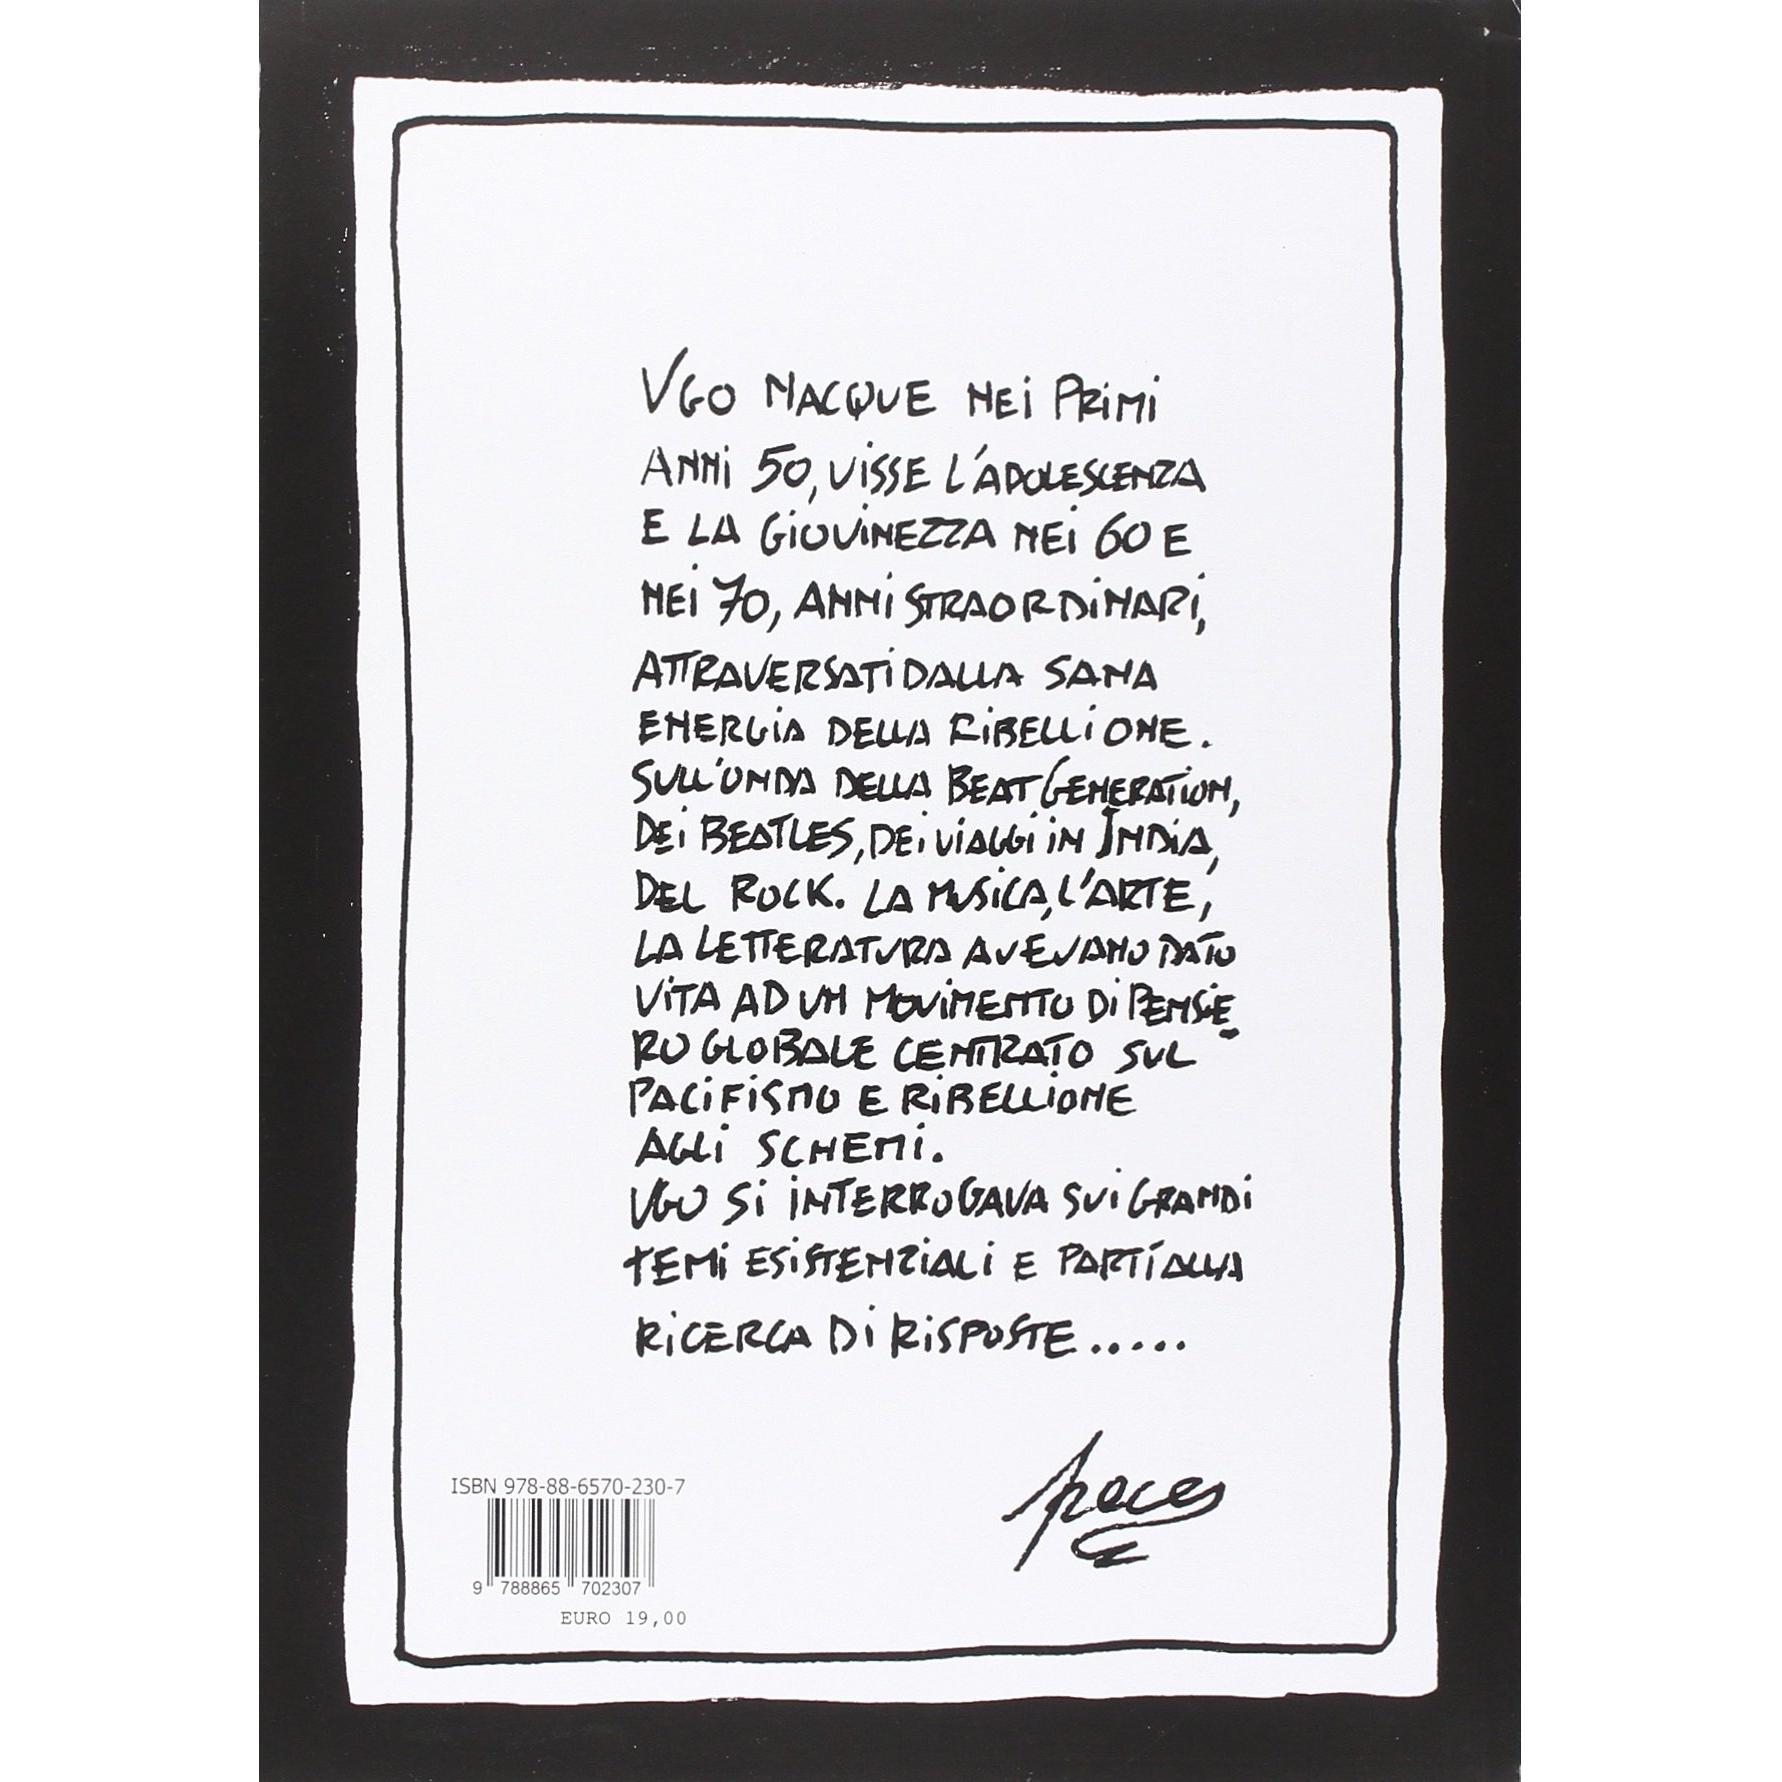 UGO NACQUE NEI PRIMI
ANNI 50, VISSE L'ADOLESCENZA
E LA GIOVINEZZA NEI 60 E
NEI 70, ANNI STRAORDINARI,
ATTRAVERSATI DALLA SANA
ENERGIA DELLA RIBELLIONE.
SULL'ONDA DELLA BEAT GENERATION,
DEI BEATLES, DEI VIAGGI IN INDIA,
DEL ROCK. LA MUSICA, L'ARTE,
LA LETTERATURA AVEVANO DATO
VITA AD UN MOVIMENTO DI PENSIE-
RO GLOBALE CENTRATO SUL
PACIFISMO E RIBELLIONE
AGLI SCHEMI.
UGO SI INTERROGAVA SUI GRANDI
TEMI ESISTENZIALI E PARTÌ ALLA
RICERCA DI RISPOSTE.....
ISBN 978-88-6570-230-7
9 788865 702307
EURO 19,00